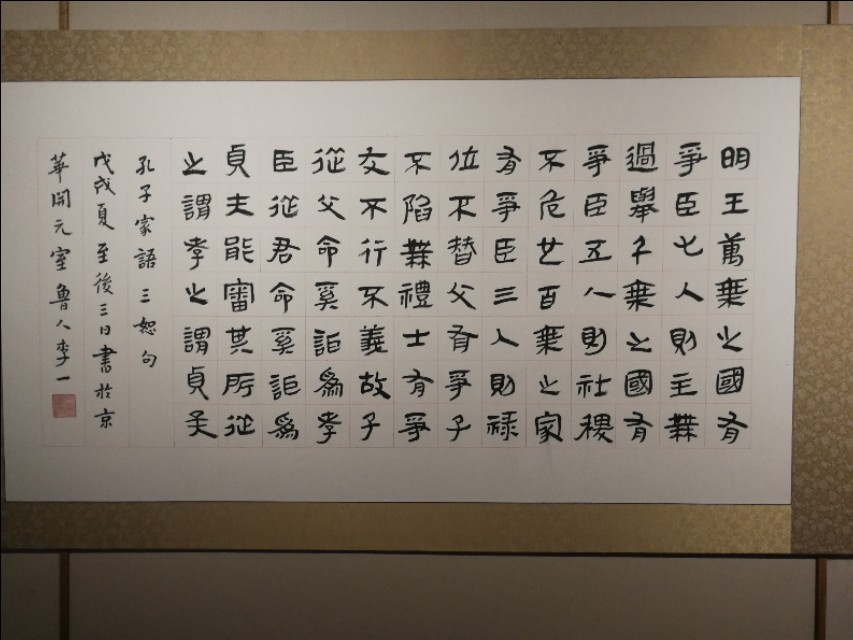 明王萬乘之國有
爭臣七人則主無
過舉千乘之國有
爭臣五人則社稷
不危也百乘之家
有爭臣三人則祿
位不替父有爭子
不陷無禮士有爭
友不行不義故子
從父命奚詎爲孝
臣從君命奚詎爲
貞夫能審其所從
之謂孝之謂貞矣
孔子家語三恕句
戊戌夏至後三日書於京
華開元室魯人李一